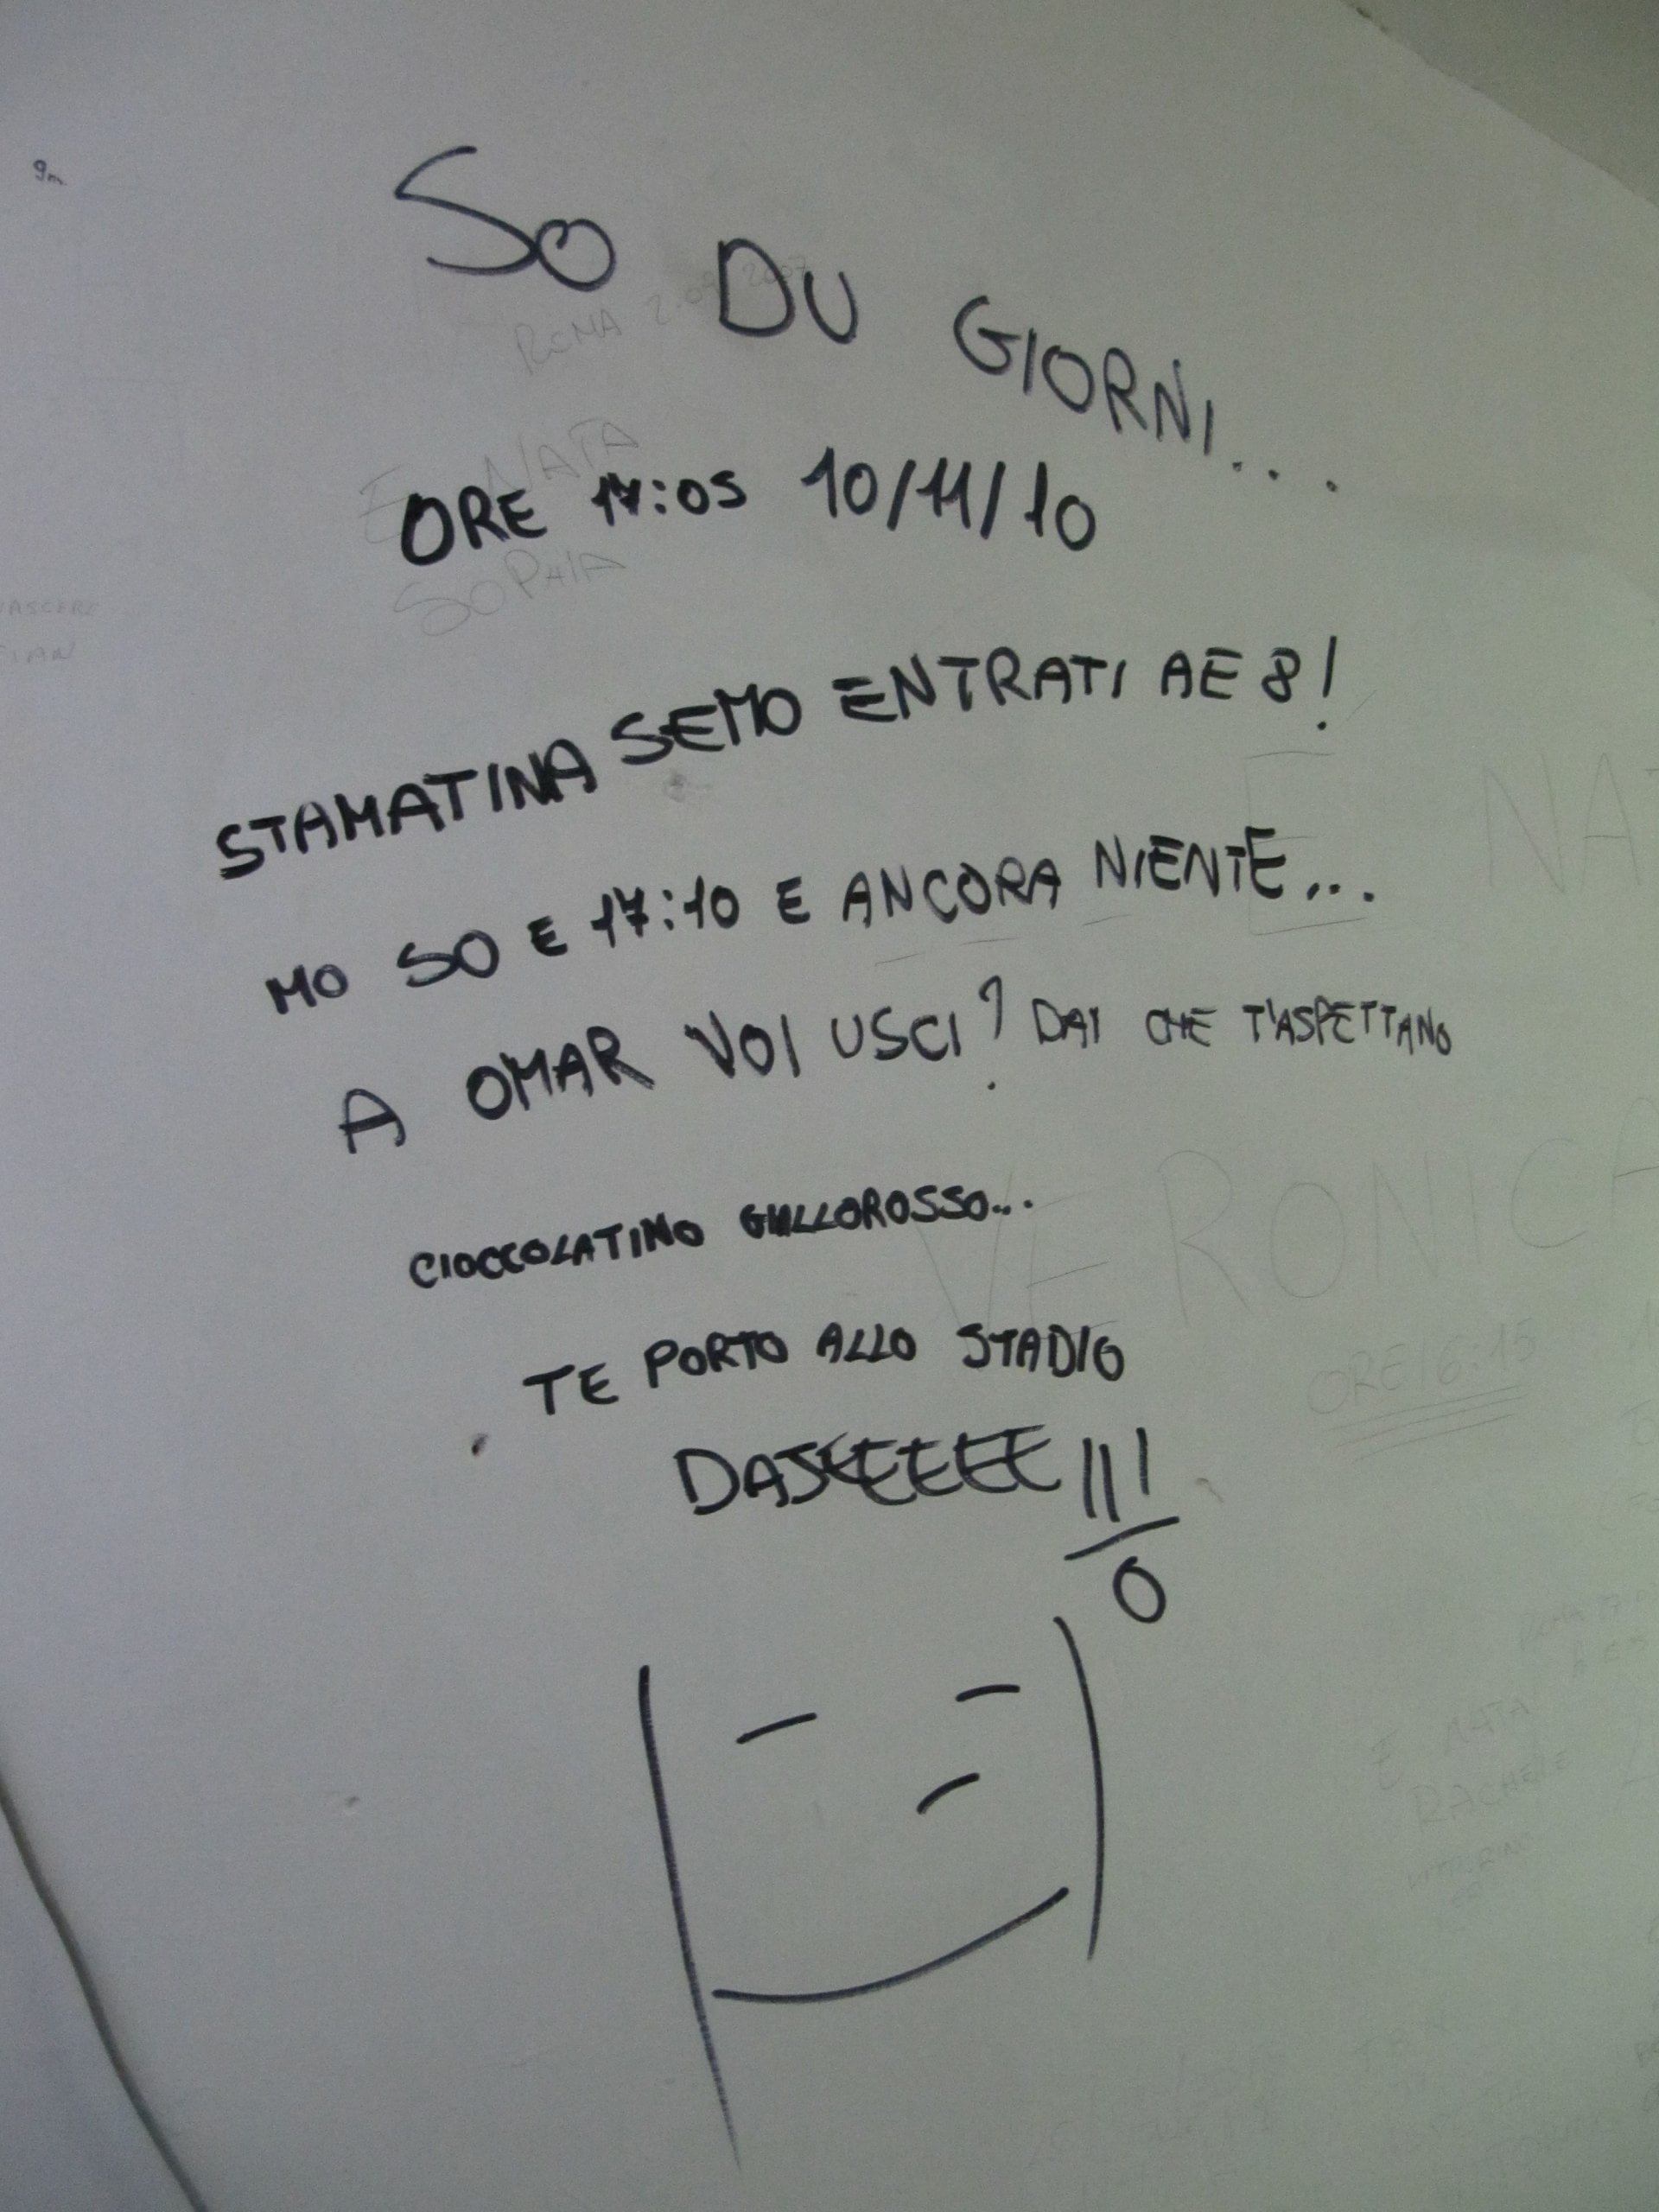 9m
SO DU GIORNI...
ROMA 2.09.2007
E NATA
ORE 17:05 10/11/10
SOPHIA
NASCERE
STAMATINA SEMO ENTRATI AE 8!
E NAT
MO SO E 17:10 E ANCORA NIENTE...
A OMAR VOI USCI? DAI CHE T'ASPETTANO
VERONICA
CIOCCOLATINO GIALLOROSSO...
ORE 16:15
TE PORTO ALLO STADIO
DAJEEEEE!!!
E NATA
RACHELE